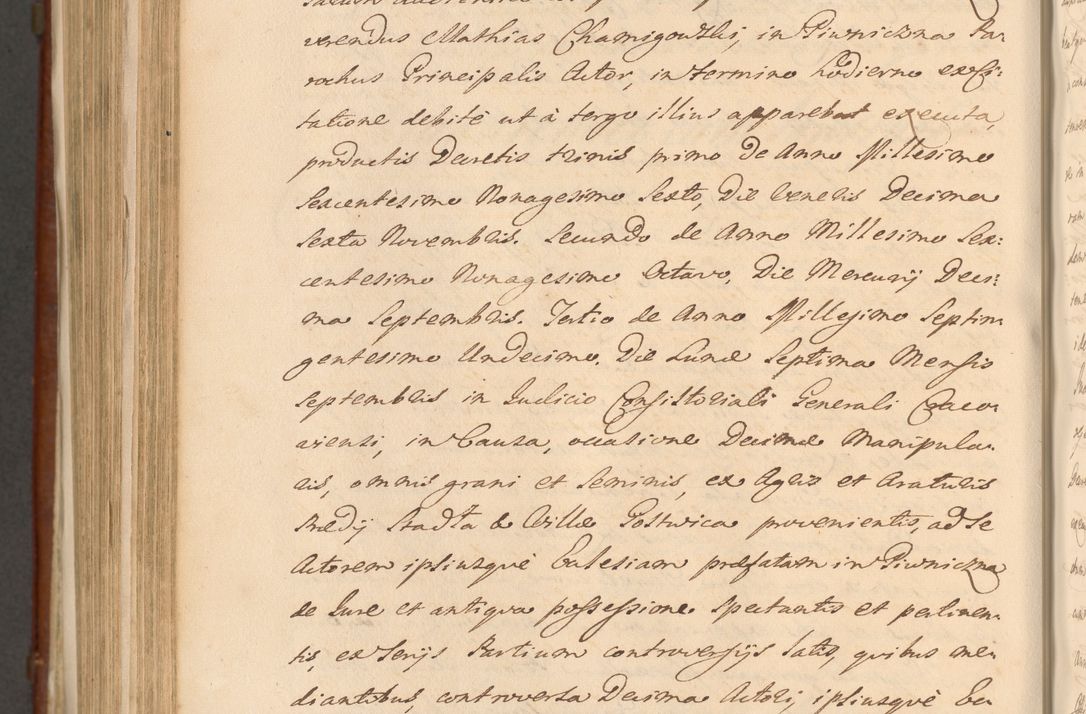 verendus Mathias Chamigowski, in Piwniczna Pa:
rochus Principalis Actor, in termino hodierno ex Ci:
tatione debitè ut à tergo illius apparebat executa,
productis Decretis trinis primo de Anno Millesimo
Sexcentesimo Nonagesimo Sexto, Die Veneris Decima
Sexta Novembris. Secundo de Anno Millesimo Sex:
centesimo Nonagesimo Octavo, Die Mercurij Deci:
ma Septembris. Tertio de Anno Millesimo Septin
gentesimo Undecimo. Die Lunæ Septima Mensis
Septembris in Iudicio Consistoriali Generali Craco:
viensi, in Causa, occasione Decimæ Manipula:
ris, omnis grani et Seminis, ex Agris et Araturis
Prædij et Villæ provenientis, ad Se
Actorem ipsiusquè Ecclesiam præfatam in Piwniczna
de Iure et antiqua possessione spectantis et pertinen:
tis, ex Serijs Partium controversijs latis, quibus me:
diantibus, controversa Decima Actori, ipsiusquè Ec: